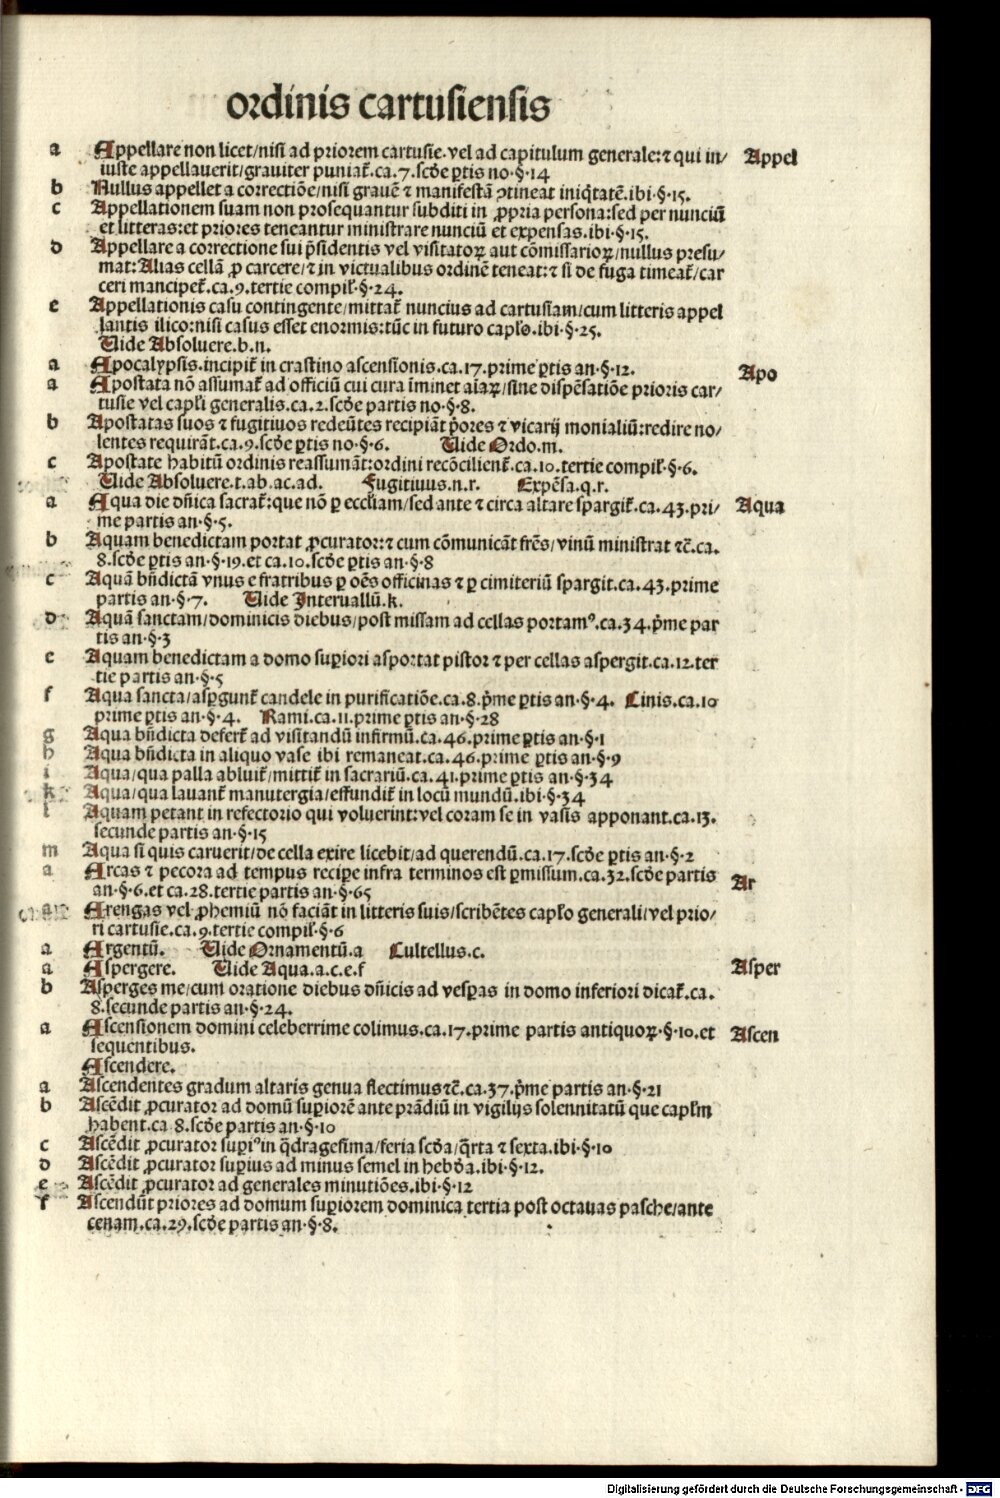 ordinis cartusiensis
a Appellare non licet/nisi ad priorem cartusie.vel ad capitulum generale:⁊ qui in/ Appel
iuste appellauerit/grauiter puniat᷑.ca.7.scd̄e ꝑtis no·§·14
b Nullus appellet a correctiōe/nisi grauē ⁊ manifestā ꝯtineat iniq̄tatē.ibi·§·15.
c Appellationem suam non prosequantur subditi in ꝓpria persona:sed per nunciū
et litteras:et priores teneantur ministrare nunciū et expensas.ibi·§·15.
d Appellare a correctione sui p̄sidentis vel visitatoꝝ aut cōmissarioꝝ/nullus presu/
mat:Alias cellā ꝓ carcere/⁊ in victualibus ordinē teneat:⁊ si de fuga timeat᷑/car
ceri mancipet᷑.ca.9.tertie compil᷑·§·24.
e Appellationis casu contingente/mittat᷑ nuncius ad cartusiam/cum litteris appel
lantis ilico:nisi casus esset enormis:tūc in futuro capl̓o.ibi·§·25.
Vide Absoluere.b.n.
a Apocalypsis.incipit᷑ in crastino ascensionis.ca.17.prime ꝑtis an·§·12. Apo
a Apostata nō assumat᷑ ad officiū cui cura īminet aīaꝝ/sine dispēsatiōe prioris car/
tusie vel capl̓i generalis.ca.2.scd̄e partis no·§·8.
b Apostatas suos ⁊ fugitiuos redeūtes recipiāt p̄ores ⁊ vicarij monialiū:redire no/
lentes requirāt.ca.9.scd̄e ꝑtis no·§·6. Vide Ordo.m.
c Apostate habitū ordinis reassumāt:ordini recōcilient᷑.ca.10.tertie compil᷑·§·6.
Vide Absoluere.t.ab.ac.ad. Fugitiuus.n.r. Expēsa.q.r.
a Aqua die dn̄ica sacrat᷑:que nō ꝑ eccl̓iam/sed ante ⁊ circa altare spargit᷑.ca.43.pri/ Aqua
me partis an·§·5.
b Aquam benedictam portat ꝓcurator:⁊ cum cōmunicāt fr̄es/vinū ministrat ⁊c̄.ca.
8.scd̄e ꝑtis an·§·19.et ca.10.scd̄e ꝑtis an·§·8
c Aquā bn̄dictā vnus e fratribus ꝑ oēs officinas ⁊ ꝑ cimiteriū spargit.ca.43.prime
partis an·§·7. Vide Interuallū.k.
d Aquā sanctam/dominicis diebus/post missam ad cellas portamꝰ.ca.34.p̄me par
tis an·§·3
e Aquam benedictam a domo suꝑiori asportat pistor ⁊ per cellas aspergit.ca.12.ter
tie partis an·§·5
f Aqua sancta/asꝑgunt᷑ candele in purificatiōe.ca.8.p̄me ꝑtis an·§·4. Cinis.ca.10
prime ꝑtis an·§·4. Rami.ca.11.prime ꝑtis an·§·28
g Aqua bn̄dicta defert᷑ ad visitandū infirmū.ca.46.prime ꝑtis an·§·1
h Aqua bn̄dicta in aliquo vase ibi remaneat.ca.46.prime ꝑtis an·§·9
i Aqua/qua palla abluit᷑/mittit᷑ in sacrariū.ca.41.prime ꝑtis an·§·34
k Aqua/qua lauant᷑ manutergia/effundit᷑ in locū mundū.ibi·§·34
l Aquam petant in refectorio qui voluerint:vel coram se in vasis apponant.ca.13.
secunde partis an·§·15
m Aqua si quis caruerit/de cella exire licebit/ad querendū.ca.17.scd̄e ꝑtis an·§·2
a Arcas ⁊ pecora ad tempus recipe infra terminos est ꝑmissum.ca.32.scd̄e partis Ar
an·§·6.et ca.28.tertie partis an·§·65
a Arengas vel ꝓhemiū nō faciāt in litteris suis/scribētes capl̓o generali/vel prio/
ri cartusie.ca.9.tertie compil᷑·§·6
a Argentū. Vide Ornamentū.a Cultellus.c.
a Aspergere. Vide Aqua.a.c.e.f Asper
b Asperges me/cum oratione diebus dn̄icis ad vesꝑas in domo inferiori dicat᷑.ca.
8.secunde partis an·§·24.
a Ascensionem domini celeberrime colimus.ca.17.prime partis antiquoꝝ·§·10.et Ascen
sequentibus.
Ascendere.
a Ascendentes gradum altaris genua flectimus⁊c̄.ca.37.p̄me partis an·§·21
b Ascēdit ꝓcurator ad domū suꝑiorē ante prādiū in vigilijs solennitatū que capl̓m
habent.ca 8.scd̄e partis an·§·10
c Ascēdit ꝓcurator suꝑiꝰ in q̄dragesima/feria scd̄a/q̄rta ⁊ sexta.ibi·§·10
d Ascēdit ꝓcurator suꝑius ad minus semel in hebd̄a.ibi·§·12.
e Ascēdit ꝓcurator ad generales minutiōes.ibi·§·12
f Ascendūt priores ad domum suꝑiorem dominica tertia post octauas pasche/ante
cenam.ca.29.scd̄e partis an·§·8.
Digitalisierung gefördert durch die Deutsche Forschungsgemeinschaft - DFG